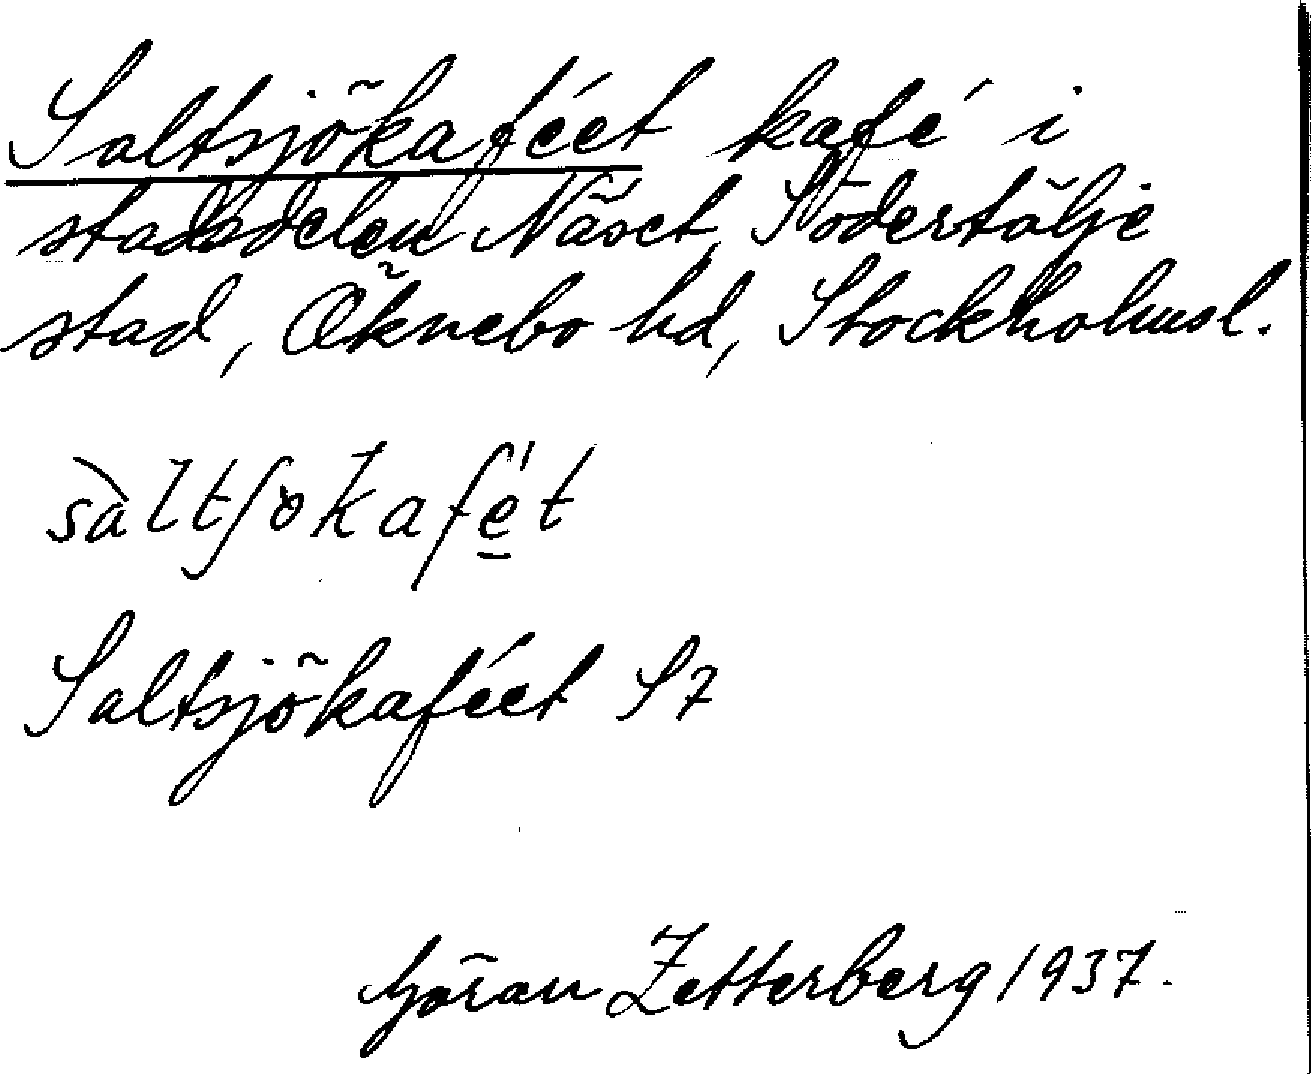 Saltsjökaféet kafé i
stadsdelen Näset, Södertälje
stad, Öknebo hd, Stockholmsl.
sàltʃökafé̱t
Saltsjökaféet S7
Göran Zetterberg 1937.